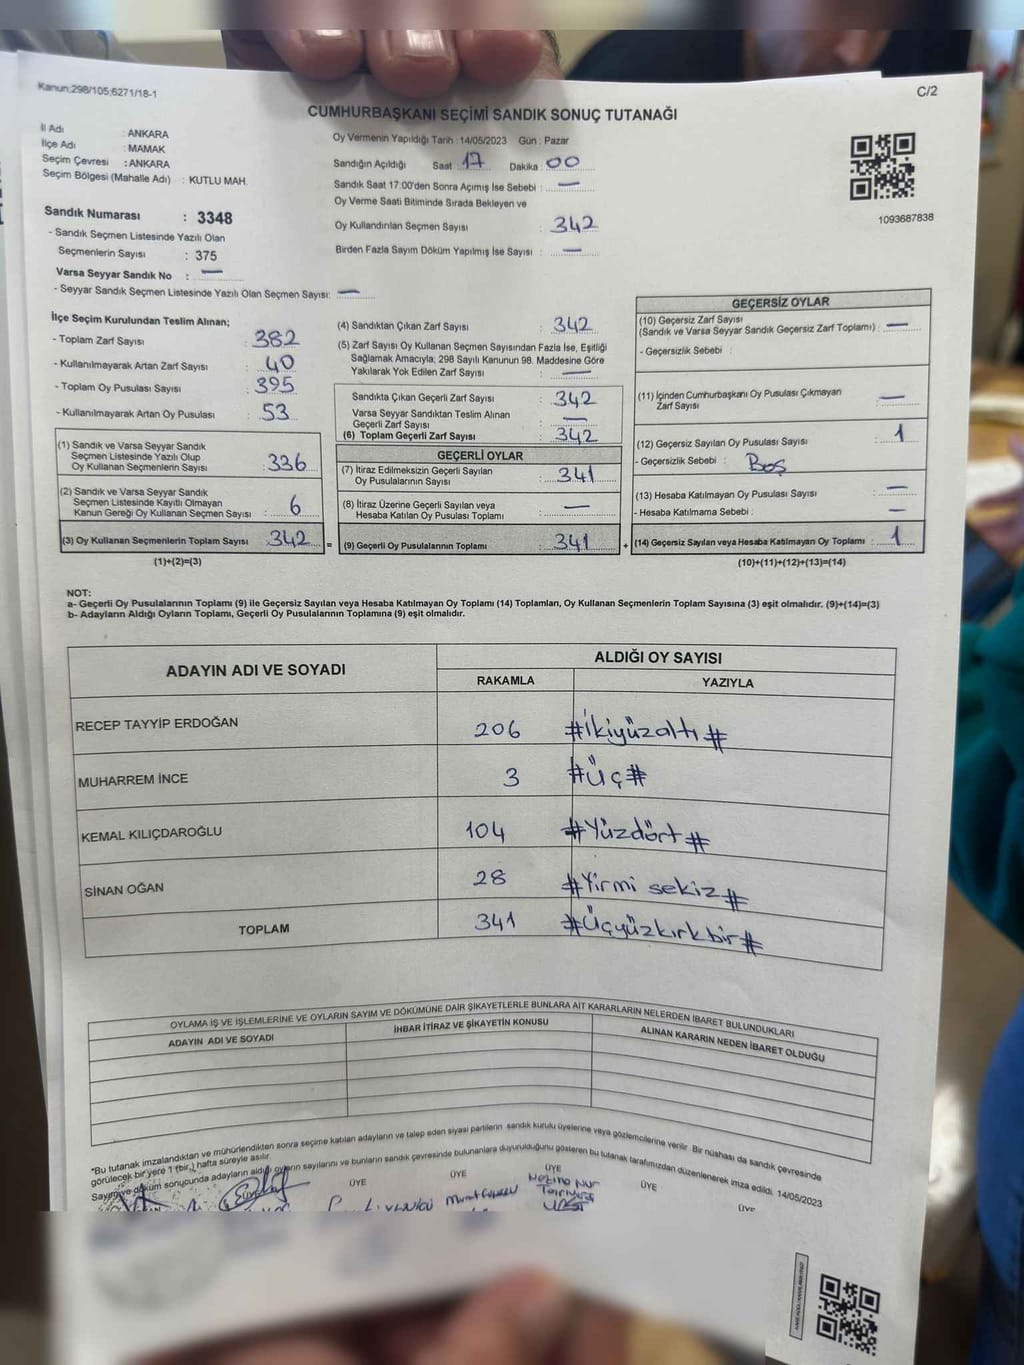 Kanun:298/105;6271/18-1
C/2
CUMHURBAŞKANI SEÇİMİ SANDIK SONUÇ TUTANAĞI
İl Adı : ANKARA
İlçe Adı : MAMAK
Seçim Çevresi : ANKARA
Seçim Bölgesi (Mahalle Adı) : KUTLU MAH.
Oy Vermenin Yapıldığı Tarih : 14/05/2023 Gün : Pazar
Sandığın Açıldığı Saat : 17 Dakika : 00
Sandık Saat 17:00'den Sonra Açımış İse Sebebi : —
Oy Verme Saati Bitiminde Sırada Bekleyen ve
Oy Kullandırılan Seçmen Sayısı : 342
Birden Fazla Sayım Döküm Yapılmış İse Sayısı : —
1093687838
Sandık Numarası : 3348
- Sandık Seçmen Listesinde Yazılı Olan
Seçmenlerin Sayısı : 375
Varsa Seyyar Sandık No : —
- Seyyar Sandık Seçmen Listesinde Yazılı Olan Seçmen Sayısı: —
İlçe Seçim Kurulundan Teslim Alınan;
- Toplam Zarf Sayısı : 382
- Kullanılmayarak Artan Zarf Sayısı : 40
- Toplam Oy Pusulası Sayısı : 395
- Kullanılmayarak Artan Oy Pusulası : 53
(1) Sandık ve Varsa Seyyar Sandık
Seçmen Listesinde Yazılı Olup
Oy Kullanan Seçmenlerin Sayısı : 336
(2) Sandık ve Varsa Seyyar Sandık
Seçmen Listesinde Kayıtlı Olmayan
Kanun Gereği Oy Kullanan Seçmen Sayısı : 6
(3) Oy Kullanan Seçmenlerin Toplam Sayısı : 342 =
(1)+(2)=(3)
(4) Sandıktan Çıkan Zarf Sayısı : 342
(5) Zarf Sayısı Oy Kullanan Seçmen Sayısından Fazla İse, Eşitliği
Sağlamak Amacıyla; 298 Sayılı Kanunun 98. Maddesine Göre
Yakılarak Yok Edilen Zarf Sayısı : —
Sandıkta Çıkan Geçerli Zarf Sayısı : 342
Varsa Seyyar Sandıktan Teslim Alınan
Geçerli Zarf Sayısı : —
(6) Toplam Geçerli Zarf Sayısı : 342
GEÇERLİ OYLAR
(7) İtiraz Edilmeksizin Geçerli Sayılan
Oy Pusulalarının Sayısı : 341
(8) İtiraz Üzerine Geçerli Sayılan veya
Hesaba Katılan Oy Pusulası Toplamı : —
(9) Geçerli Oy Pusulalarının Toplamı : 341 +
GEÇERSİZ OYLAR
(10) Geçersiz Zarf Sayısı
(Sandık ve Varsa Seyyar Sandık Geçersiz Zarf Toplamı) : —
- Geçersizlik Sebebi :
(11) İçinden Cumhurbaşkanı Oy Pusulası Çıkmayan
Zarf Sayısı : —
(12) Geçersiz Sayılan Oy Pusulası Sayısı : 1
- Geçersizlik Sebebi : Boş
(13) Hesaba Katılmayan Oy Pusulası Sayısı : —
- Hesaba Katılmama Sebebi : —
(14) Geçersiz Sayılan veya Hesaba Katılmayan Oy Toplamı : 1
(10)+(11)+(12)+(13)=(14)
NOT:
a- Geçerli Oy Pusulalarının Toplamı (9) ile Geçersiz Sayılan veya Hesaba Katılmayan Oy Toplamı (14) Toplamları, Oy Kullanan Seçmenlerin Toplam Sayısına (3) eşit olmalıdır. (9)+(14)=(3)
b- Adayların Aldığı Oyların Toplamı, Geçerli Oy Pusulalarının Toplamına (9) eşit olmalıdır.
ADAYIN ADI VE SOYADI
ALDIĞI OY SAYISI
RAKAMLA YAZIYLA
RECEP TAYYİP ERDOĞAN 206 #İkiyüzaltı#
MUHARREM İNCE 3 #Üç#
KEMAL KILIÇDAROĞLU 104 #Yüzdört#
SİNAN OĞAN 28 #Yirmi sekiz#
TOPLAM 341 #Üçyüzkırkbir#
OYLAMA İŞ VE İŞLEMLERİNE VE OYLARIN SAYIM VE DÖKÜMÜNE DAİR ŞİKAYETLERLE BUNLARA AİT KARARLARIN NELERDEN İBARET BULUNDUKLARI
ADAYIN ADI VE SOYADI İHBAR İTİRAZ VE ŞİKAYETİN KONUSU ALINAN KARARIN NEDEN İBARET OLDUĞU
"Bu tutanak imzalandıktan ve mühürlendikten sonra seçime katılan adayların ve talep eden siyasi partilerin sandık kurulu üyelerine veya gözlemcilerine verilir. Bir nüshası da sandık çevresinde
görülecek bir yere 1 (bir) hafta süreyle asılır.
Sayım ve döküm sonucunda adayların aldığı oyların sayılarını ve bunların sandık çevresinde bulunanlara duyurulduğunu gösteren bu tutanak tarafımızdan düzenlenerek imza edildi. 14/05/2023
ÜYE ÜYE ÜYE ÜYE
Murat
Nur
ÜYE